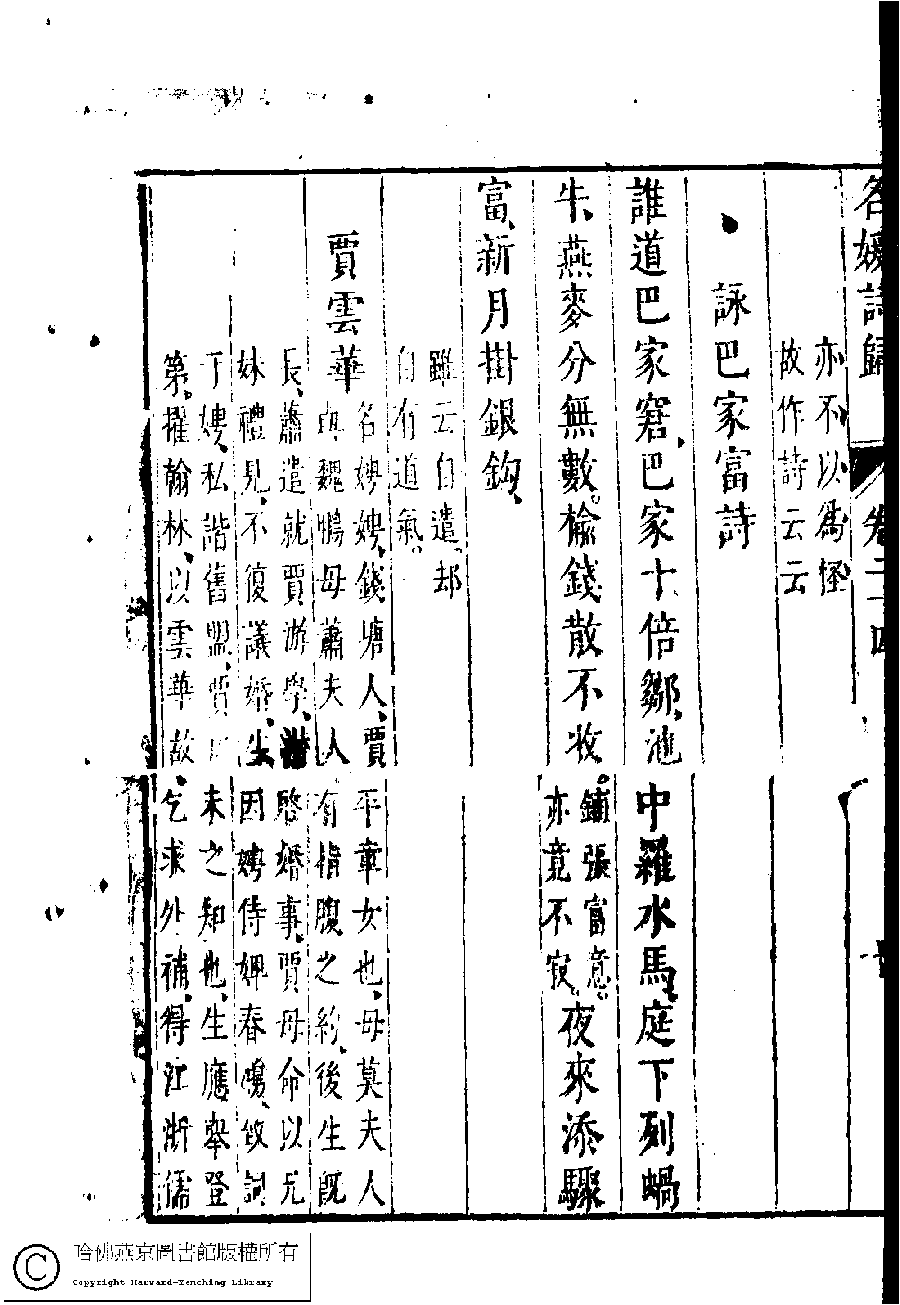 名媛詩歸 卷二十四 十
亦不以爲怪
故作詩云云
詠巴家富詩
誰道巴家窘、巴家十倍鄒、池中羅水馬、庭下列蝸
牛、燕麥分無數。榆錢散不收。鋪張富意。亦竟不寂。夜來添驟
富、新月掛銀鈎、
雖云自遣、却
自有道氣。
賈雲華
名娉娉、錢塘人、賈平章女也、母莫夫人
與魏鵬母蕭夫人有指腹之約、後生既
長、蕭遣就賈游學、啓婚事、賈母命以兄
妹禮見、不復議婚、生因娉侍婢春鴻、致詞
于娉、私諧舊盟、賈未之知也、生應舉登
第、擢翰林、以雲華故、乞求外補、得江浙儒
哈佛燕京圖書館版權所有
Copyright Harvard-Yenching Library